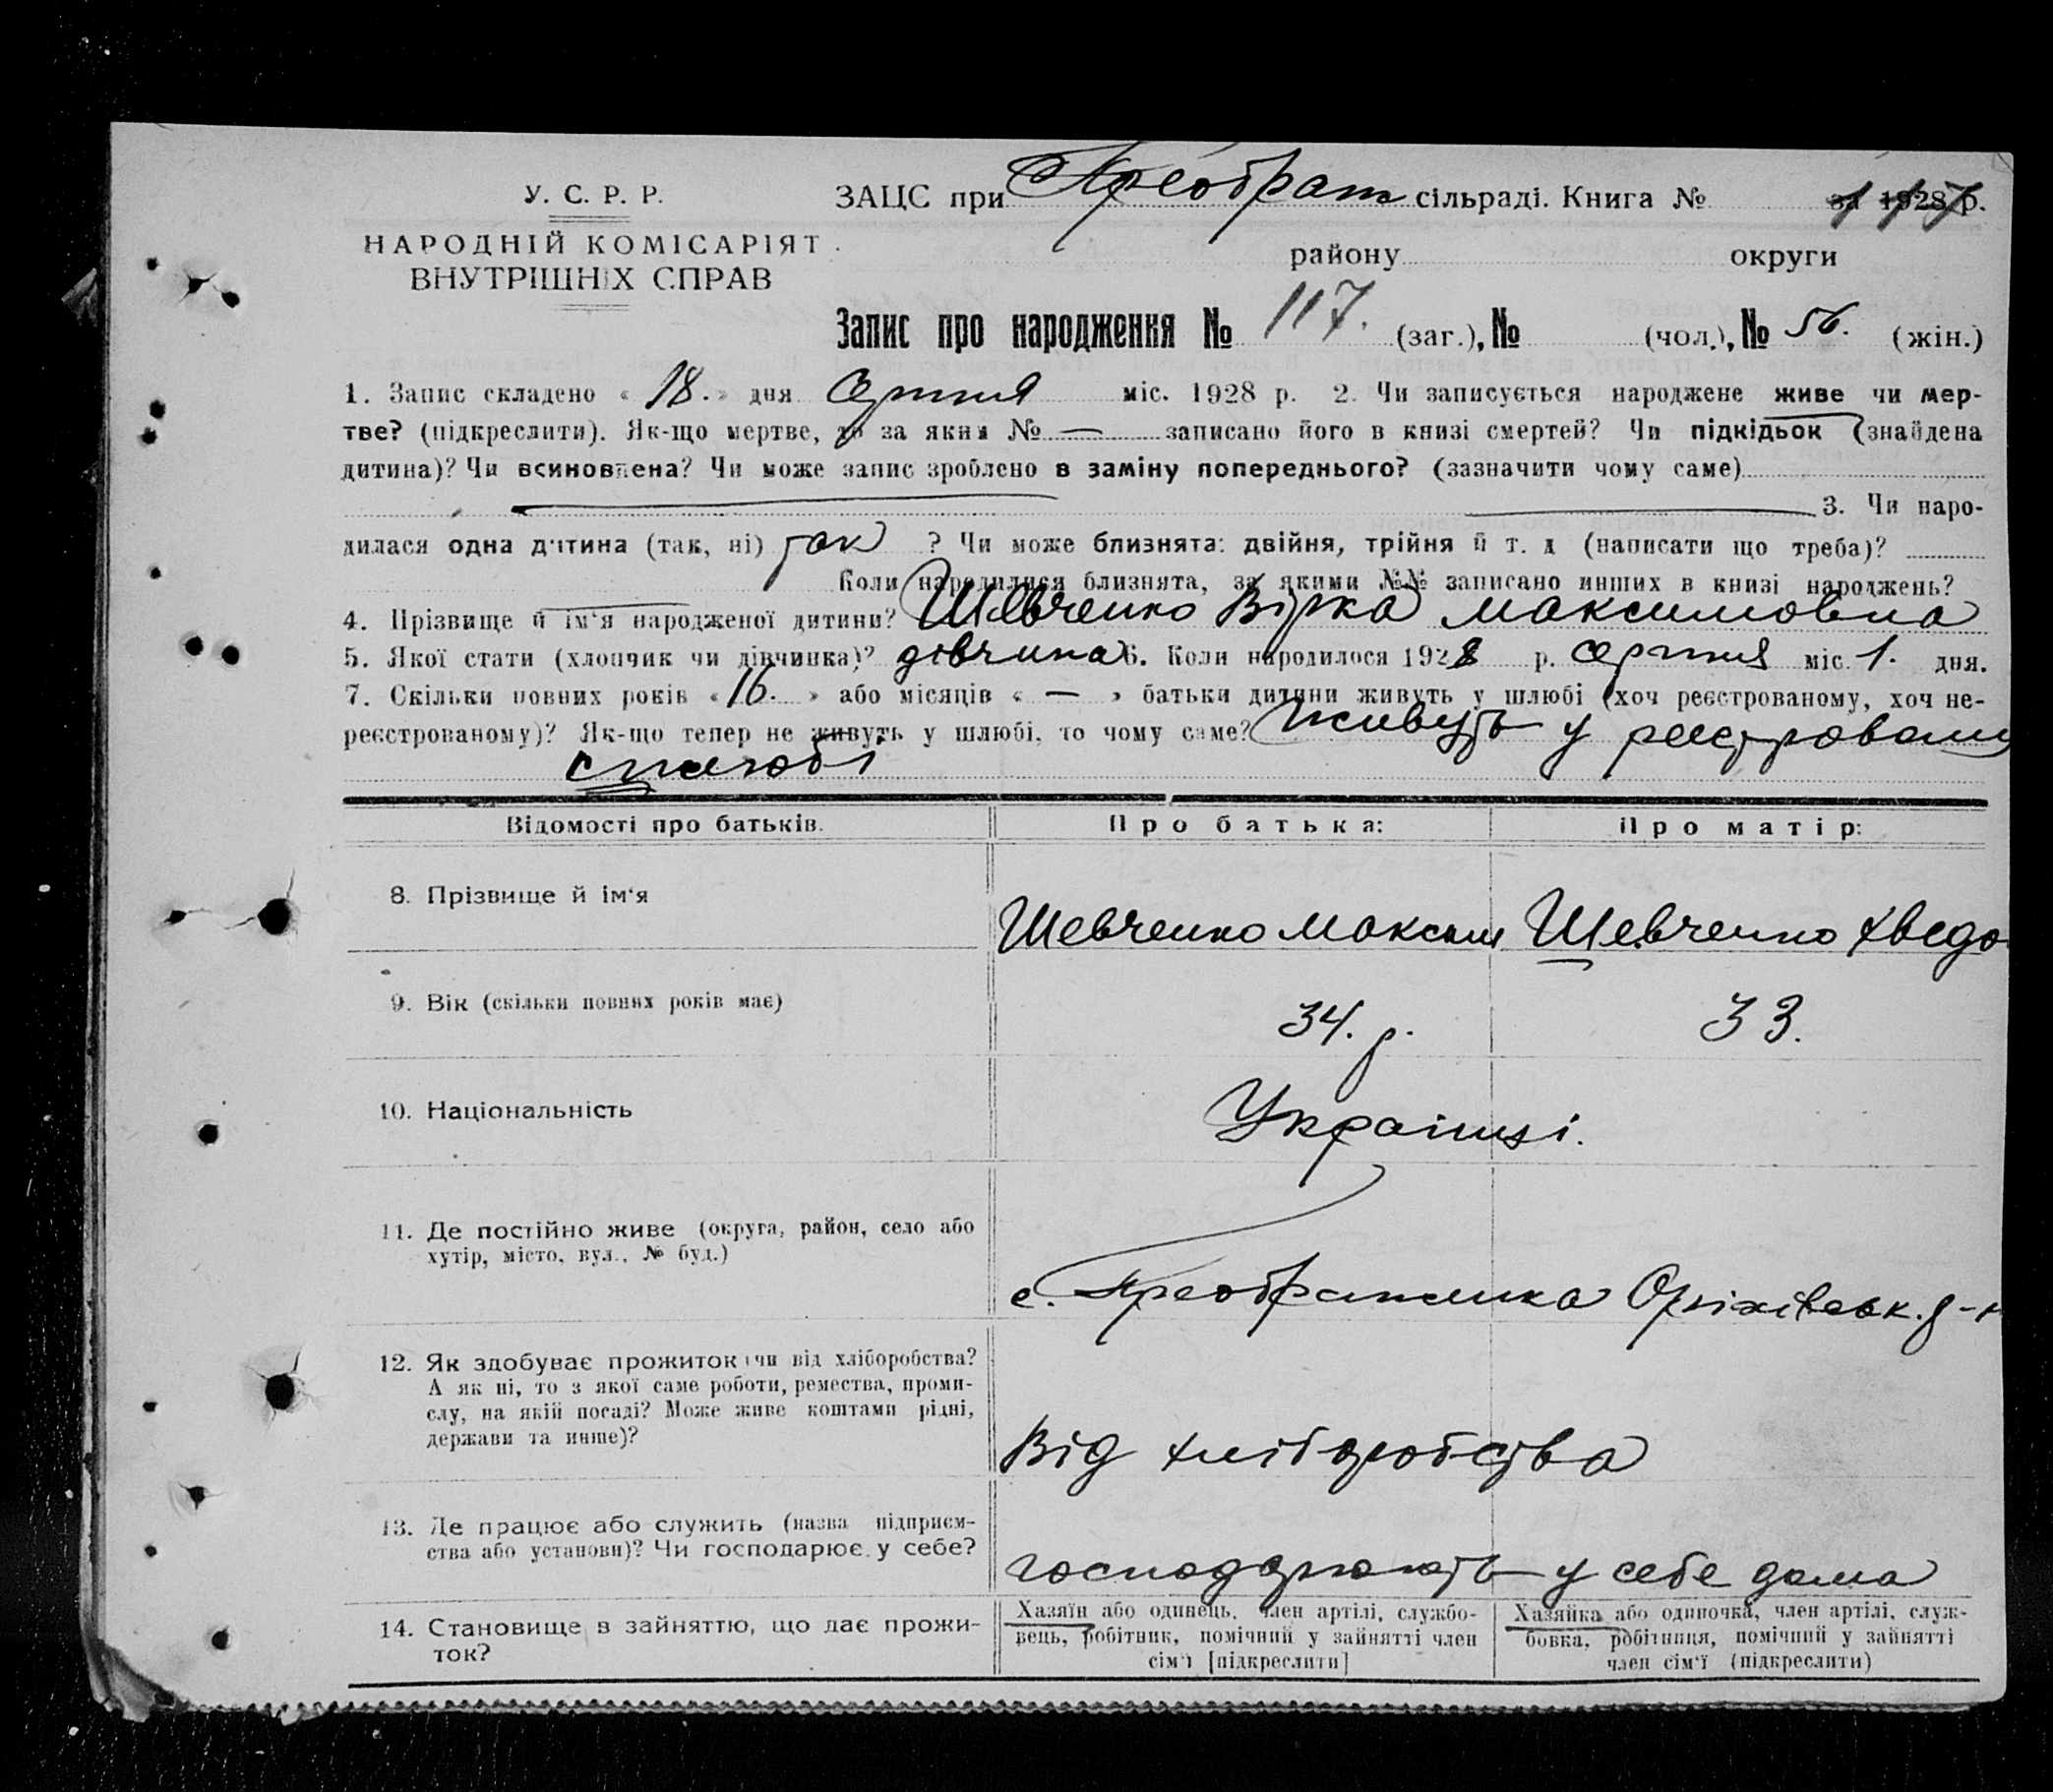 У. С. Р. Р.
НАРОДНІЙ КОМІСАРІЯТ
ВНУТРІШНІХ СПРАВ
ЗАЦС при Преображ сільраді. Книга № за 1928 р. 117
району округи
Запис про народження № 117. (заг.), № (чол.), № 56. (жін.)
1. Запис складено « 18. » дня Серпня міс. 1928 р. 2. Чи записується народжене живе чи мер-
тве? (підкреслити). Як-що мертве, то за яким № — записано його в книзі смертей? Чи підкідьок (знайдена
дитина)? Чи всиновлена? Чи може запис зроблено в заміну попереднього? (зазначити чому саме)
3. Чи наро-
дилася одна дитина (так, ні) так ? Чи може близнята: двійня, трійня й т. д (написати що треба)?
Коли народилися близнята, за якими №№ записано инших в книзі народжень?
4. Прізвище й ім'я народженої дитини? Шевченко Вірка Максимовна
5. Якої стати (хлопчик чи дівчинка)? дівчина 6. Коли народилося 1928 р. серпня міс. 1. дня.
7. Скільки повних років « 16. » або місяців « — » батьки дитини живуть у шлюбі (хоч реєстрованому, хоч не-
реєстрованому)? Як-що тепер не живуть у шлюбі, то чому саме? живуть у реєстровану
Відомості про батьків.
Про батька:
Про матір:
8. Прізвище й ім'я
Шевченко Максим
Шевченко Хведо
9. Вік (скільки повних років має)
34. р.
33.
10. Національність
Українці.
11. Де постійно живе (округа, район, село або
хутір, місто, вул., № буд.)
с. Преображенка Оріхівськ. р-н
12. Як здобуває прожиток (чи від хліборобства?
А як ні, то з якої саме роботи, ремества, проми-
слу, на якій посаді? Може живе коштами рідні,
держави та инше)?
Від хліборобства
13. Де працює або служить (назва підприєм-
ства або установи)? Чи господарює у себе?
господарюють у себе дома
14. Становище в зайняттю, що дає прожи-
ток?
Хазяїн або одинець, член артілі, службо-
вець, робітник, помічний у зайнятті член
сім'ї [підкреслити]
Хазяйка або одиночка, член артілі, служ-
бовка, робітниця, помічний у зайнятті
член сім'ї (підкреслити)